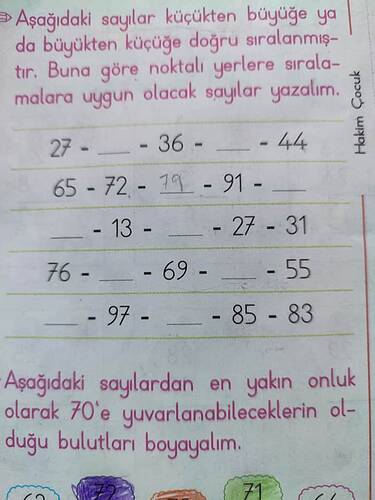 Aşağıdaki sayılar küçükten büyüğe ya
da büyükten küçüğe doğru sıralanmış-
tır. Buna göre noktalı yerlere sırala-
malara uygun olacak sayılar yazalım.
Hakim Çocuk
27 - ___ - 36 - ___ - 44
65 - 72 - 79 - 91 - ___
___ - 13 - ___ - 27 - 31
76 - ___ - 69 - ___ - 55
___ - 97 - ___ - 85 - 83
Aşağıdaki sayılardan en yakın onluk
olarak 70'e yuvarlanabileceklerin ol-
duğu bulutları boyayalım.
72 71